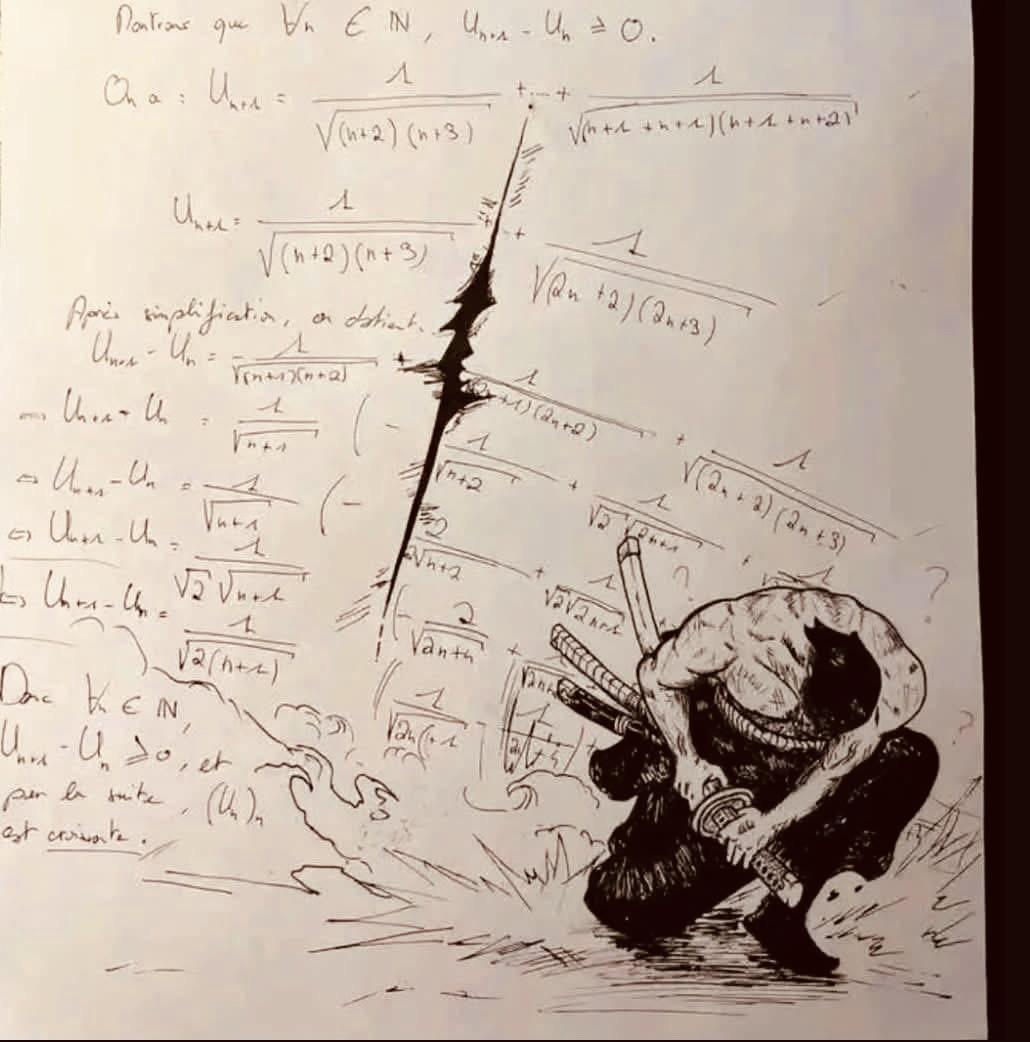 Montrons que ∀n ∈ ℕ, Uₙ₊₁ - Uₙ ≥ 0.
On a : Uₙ₊₁ = 1/√((n+2)(n+3)) + ... + 1/√((n+1+n+1)(n+1+n+2))
Uₙ₊₁ = 1/√((n+2)(n+3)) + ... + 1/√((2n+2)(2n+3))
Après simplification, on obtient
Uₙ₊₁ - Uₙ = - 1/√((n+1)(n+2)) + 1/√((2n+1)(2n+2)) + 1/√((2n+2)(2n+3))
⇔ Uₙ₊₁ - Uₙ = 1/√(n+1) ( - 1/√(n+2) + 1/(√2 √(2n+1)) +
⇔ Uₙ₊₁ - Uₙ = 1/√(n+1) ( - 2/(2√(n+2)) + 1/(√2√(2n+1))
⇔ Uₙ₊₁ - Uₙ = 1/(√2 √(n+1)) ( - 2/√(2n+4) +
⇔ Uₙ₊₁ - Uₙ = 1/√(2(n+1)) (
? ? ?
Donc ∀n ∈ ℕ,
Uₙ₊₁ - Uₙ ≥ 0, et
par la suite, (Uₙ)ₙ
est croissante.